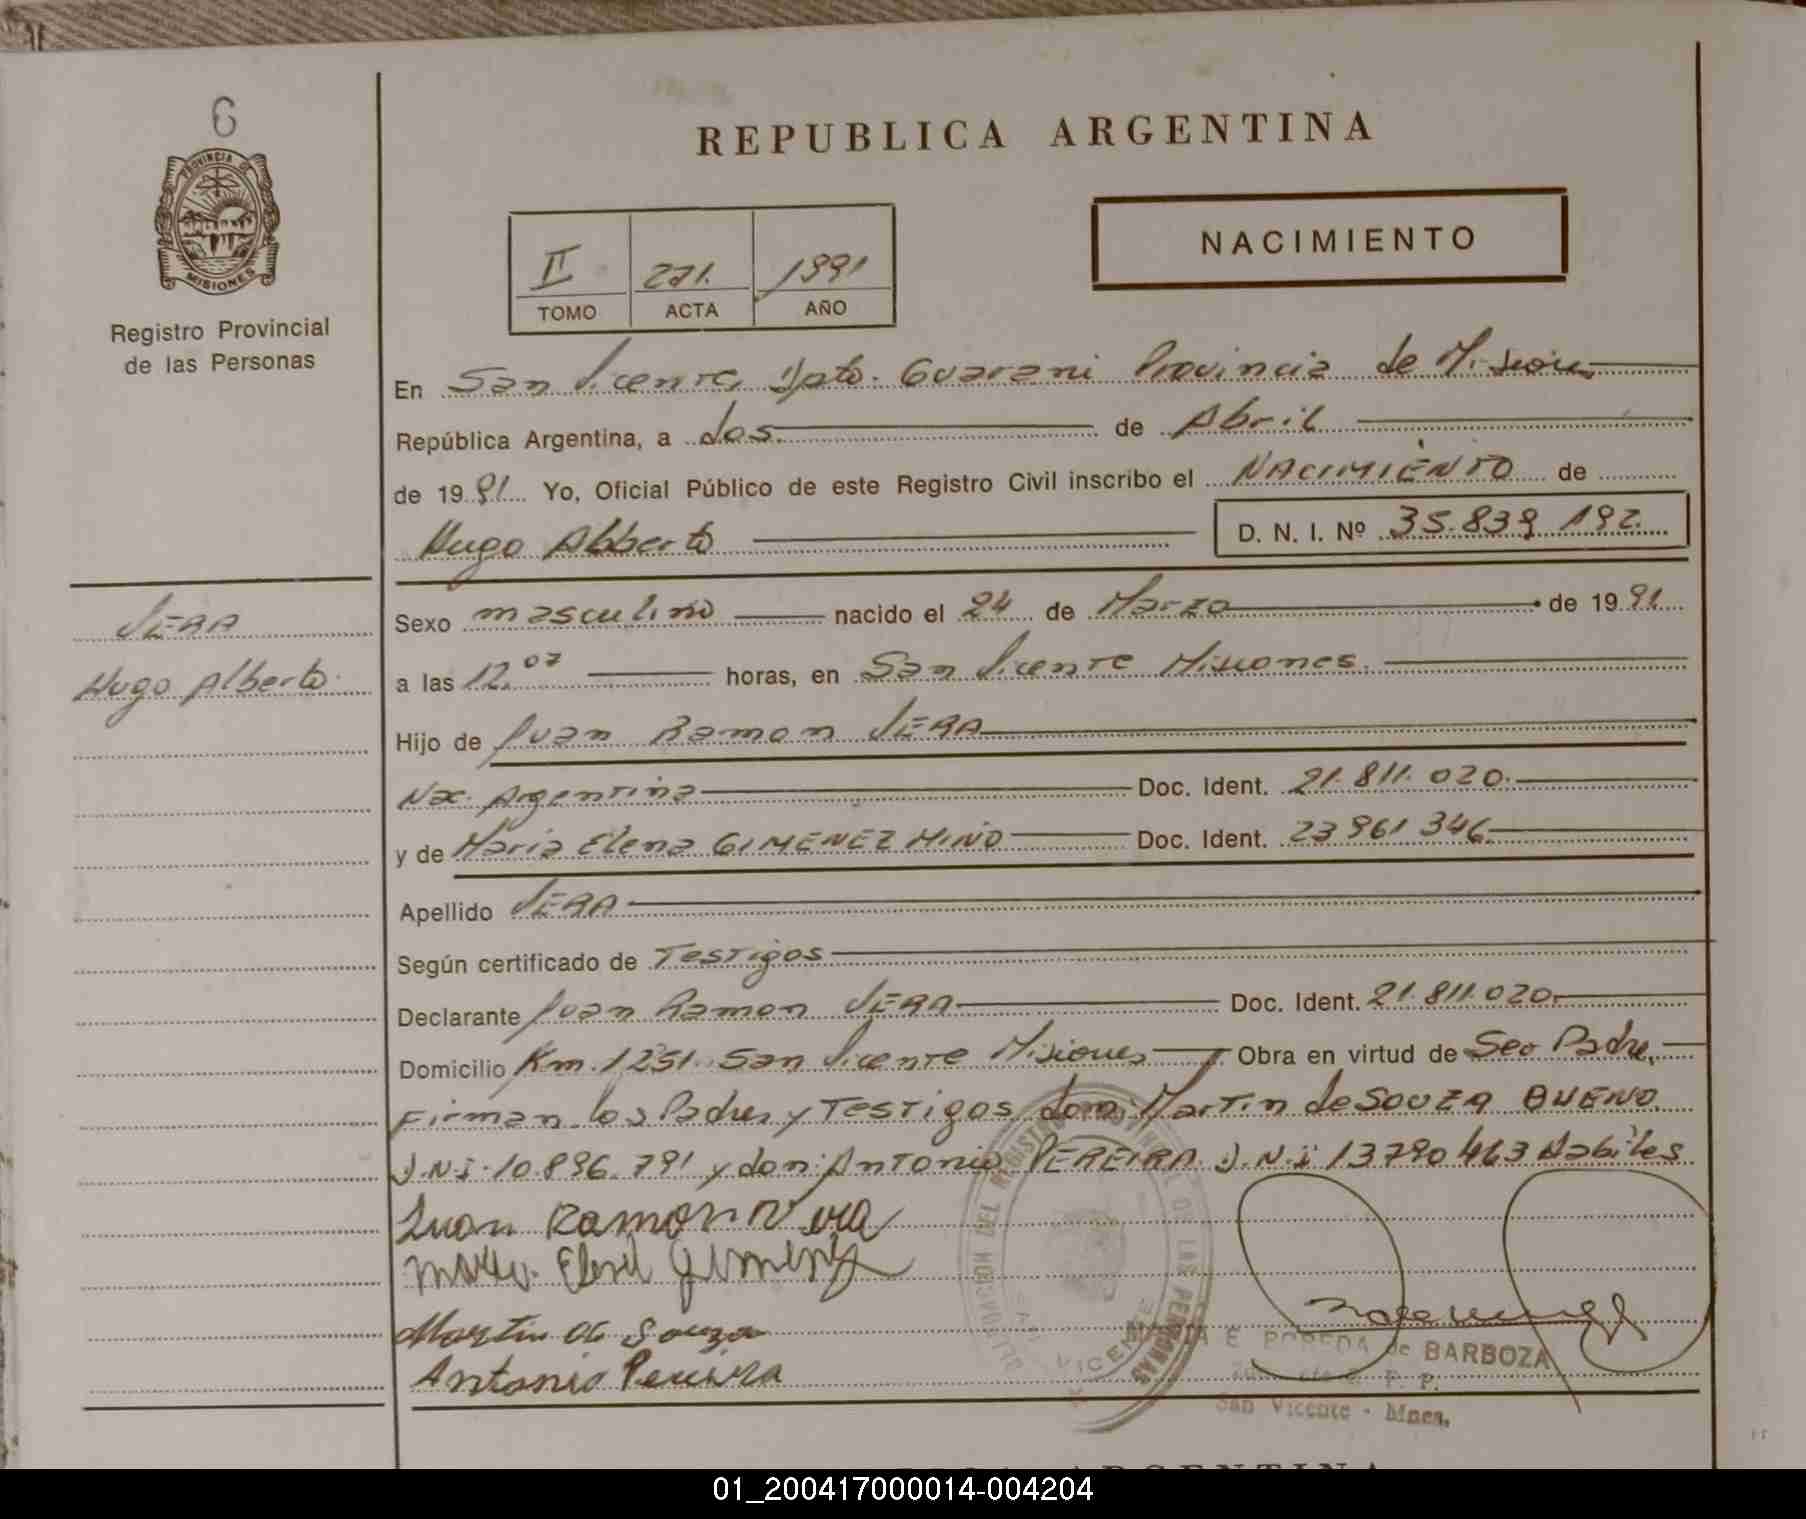 6
PROVINCIA DE
MISIONES
Registro Provincial
de las Personas
REPUBLICA ARGENTINA
NACIMIENTO
II 271. 1991
TOMO ACTA AÑO
En San Vicente, Dpto. Guarani Provincia de Misiones
República Argentina, a dos de Abril
de 1991 Yo, Oficial Público de este Registro Civil inscribo el NACIMIENTO de
Hugo Alberto D. N. I. Nº 35.839 192.
VERA
Hugo Alberto
Sexo masculino nacido el 24 de Marzo de 1991
a las 12.07 horas, en San Vicente Misiones.
Hijo de Juan Ramon VERA
Nac. Argentina Doc. Ident. 21.811.020.
y de Maria Elena GIMENEZ MIÑO Doc. Ident. 23 961 346
Apellido VERA
Según certificado de Testigos
Declarante Juan Ramon VERA Doc. Ident. 21.811.020.
Domicilio Km. 1251. San Vicente Misiones Obra en virtud de Seo Padre,
Firman los Padres y Testigos, don: Martin de SOUZA BUENO
D.N.i. 10.896.791 y don: Antonio PEREIRA D.N.i 13790463 Habiles
Juan RamoN Vera
Elena Gimenez
Martin de Souza
Antonio Pereira
DELEGACION DEL REGISTRO PROVINCIAL DE LAS PERSONAS
SAN VICENTE
E de BARBOZA
R. P. P.
San Vicente - Mnes.
REPUBLICA ARGENTINA
01_200417000014-004204